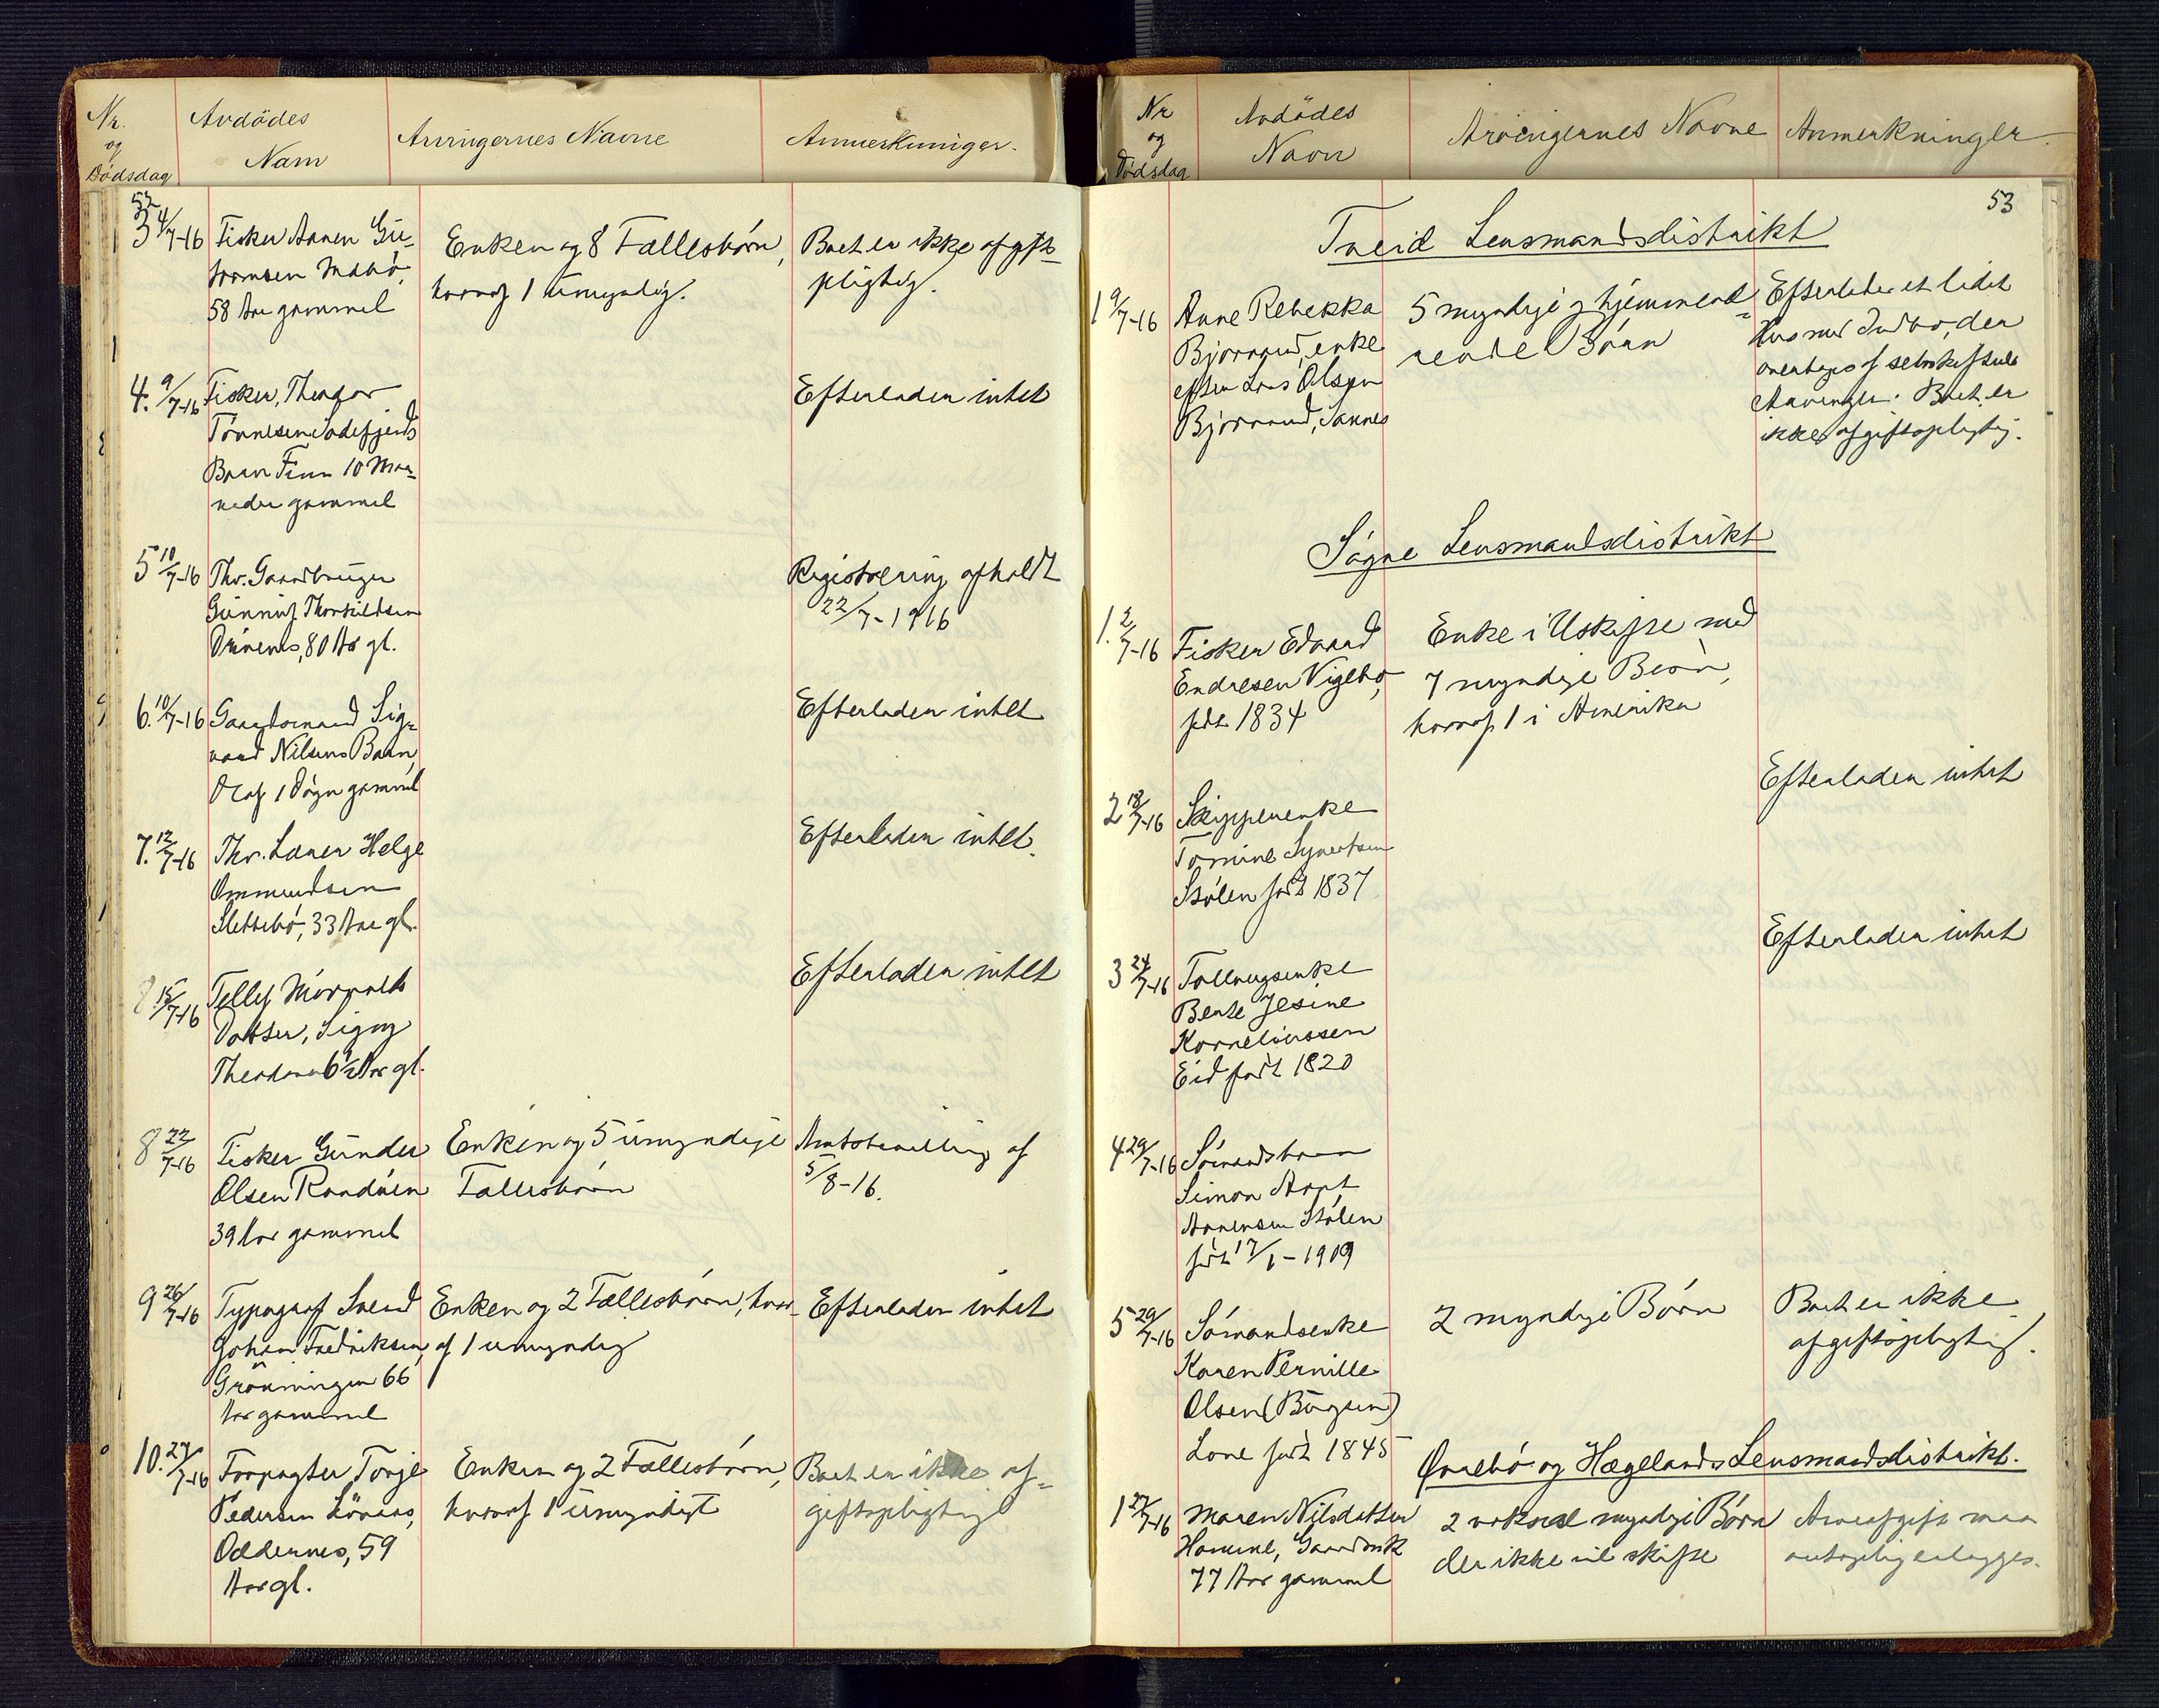 Nr.
og
Dödsdag
Avdödes
Navn
Arvingernes Navne
Anmerkninger.
52
3 4/7-16 Fisker Aanen Gu-
58 Aar gammel
Enken og 8 Fællesbörn,
hvoraf 1 umyndig.
Boet er ikke afgifts-
pligtig.
4. 9/7-16 Fisker, Theodor
Tönnesen
Barn Finn 10 Maa-
neder gammel
Efterlader intet
5 10/7-16 Fhv. Gaardbruger
Gunnuf Thorkildsen
80 Aar gl.
Registrering afholdt
22/7-1916
6. 10/7-16 Gaardsmand Sig-
vard Nilsens Barn,
Olaf 1 Dögn gammel
Efterlader intet
7. 12/7-16 Fhv. Lærer Helge
Ommundsen
Slettebö, 33 Aar gl.
Efterlader intet.
8 15/7-16 Tellef
Datter, Signy
Theodora 6 1/2 Aar gl.
Efterlader intet
8 22/7-16 Fisker Gunder
Olsen Randöen
39 Aar gammel
Enken og 5 umyndige
Fællesbörn
Amtsbevilling af
5/8-16.
9 26/7-16 Typograf Svend
Johan Fredriksen,
Grönningen 66
Aar gammel
Enken og 2 Fællesbörn, hvor-
af 1 umyndig
Efterlader intet
10. 27/7-16 Forpagter Torje
Pedersen
Oddernes, 59
Aar gl.
Enken og 2 Fællesbörn,
hvoraf 1 umyndigt
Boet er ikke af-
giftspligtig
Nr
og
Dödsdag
Avdödes
Navn
Arvingernes Navne
Anmerkninger.
53
Tveid Lensmandsdistrikt
1 9/7-16 Anne Rebekka
Björnaud, enke
efter Lars Olsen
Björnaud,
5 myndige og hjemmevæ-
rende Börn
Efterlader et lidet
Hus med Indbo, der
overtages af selvskiftende
Arvinger. Boet er
ikke afgiftspligtig.
Sögne Lensmandsdistrikt
1. 2/7-16 Fisker Edvard
Endresen Vigebö,
född 1834
Enke i Uskifte med
7 myndige Börn,
hvoraf 1 i Amerika
2 18/7-16 Skipperenke
Tomine Syvertsen
Stölen född 1837
Efterlader intet
3 24/7-16
Bente Jesine
Korneliussen
Eid född 1820
Efterlader intet
4 29/7-16 Sömandsbarn
Simon Arnt
Aanensen Stölen
född 17/1-1909
5 29/7-16 Sömandsenke
Karen Pernille
Olsen (Börgsen)
Lone född 1845
2 myndige Börn
Boet er ikke
afgiftspligtig.
Øvrebö og Hægelands Lensmandsdistrikt.
1 27/7-16 Maren Nilsdatter
Homme,
77 Aar gammel
2 voksne myndige Börn
der ikke vil skifte
Arveafgift maa
antagelig erlægges.